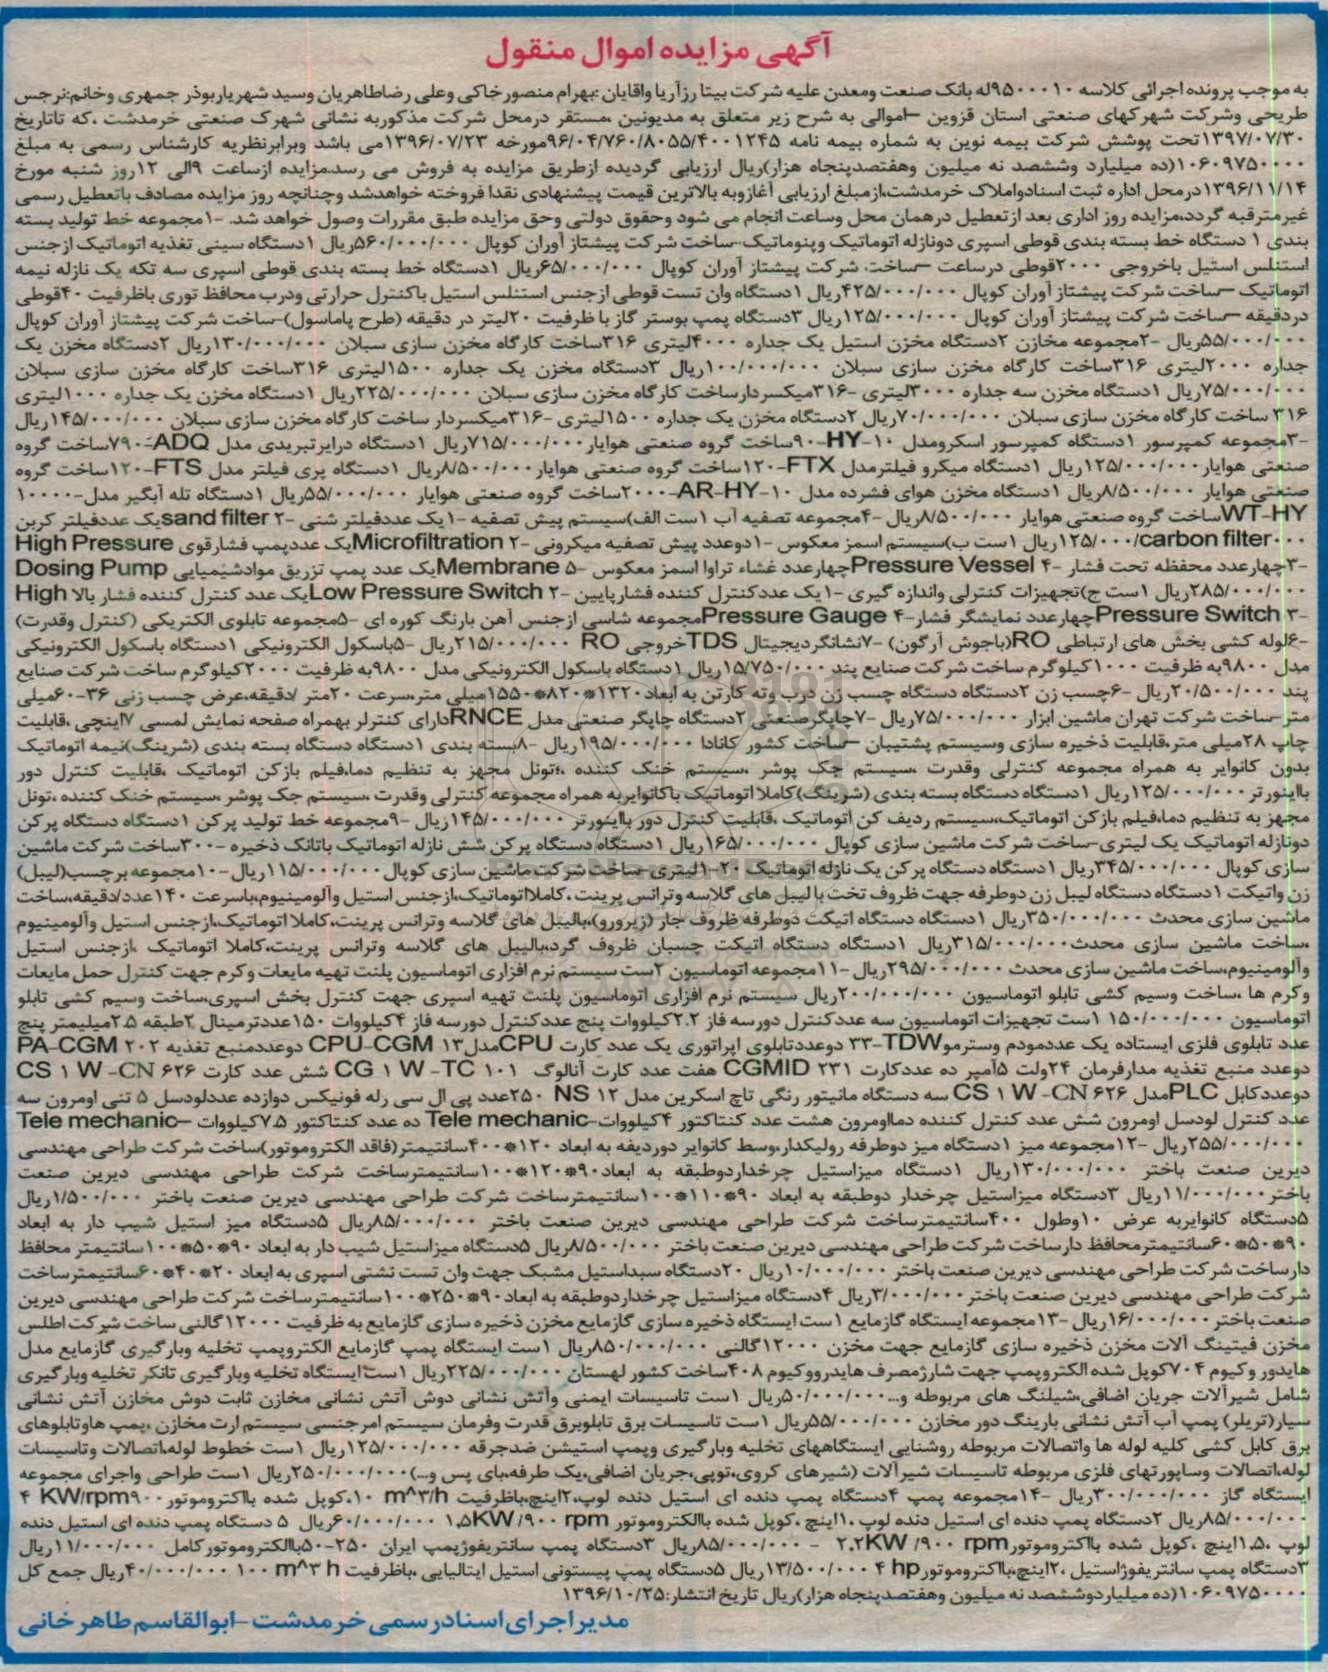 آگهی مزایده اموال منقول
به موجب پرونده اجرائی کلاسه ۹۵۰۰۰۱۰له بانک صنعت ومعدن علیه شرکت بیتا رزآریا واقایان :بهرام منصور خاکی وعلی رضاطاهریان وسید شهریاربوذر جمهری وخانم:نرجس
طریحی وشرکت شهرکهای صنعتی استان قزوین –اموالی به شرح زیر متعلق به مدیونین ،مستقر درمحل شرکت مذکوربه نشانی شهرک صنعتی خرمدشت ،که تاتاریخ
۱۳۹۷/۰۷/۳۰تحت پوشش شرکت بیمه نوین به شماره بیمه نامه ۹۶/۰۴/۷۶۰/۸۰۵۵/۴۰۰۱۲۴۵مورخه ۱۳۹۶/۰۷/۲۳می باشد وبرابرنظریه کارشناس رسمی به مبلغ
۱۰۶۰۹۷۵۰۰۰۰(ده میلیارد وششصد نه میلیون وهفتصدپنجاه هزار)ریال ارزیابی گردیده ازطریق مزایده به فروش می رسد.مزایده ازساعت ۹الی ۱۲روز شنبه مورخ
۱۳۹۶/۱۱/۱۴درمحل اداره ثبت اسنادواملاک خرمدشت،ازمبلغ ارزیابی آغازوبه بالاترین قیمت پیشنهادی نقدا فروخته خواهدشد وچنانچه روز مزایده مصادف باتعطیل رسمی
غیرمترقبه گردد،مزایده روز اداری بعد ازتعطیل درهمان محل وساعت انجام می شود وحقوق دولتی وحق مزایده طبق مقررات وصول خواهد شد. ۱-مجموعه خط تولید بسته
بندی ۱ دستگاه خط بسته بندی قوطی اسپری دونازله اتوماتیک وپنوماتیک-ساخت شرکت پیشتاز آوران کوپال ۵۶۰/۰۰۰/۰۰۰ریال ۱دستگاه سینی تغذیه اتوماتیک ازجنس
استنلس استیل باخروجی ۲۰۰۰قوطی درساعت –ساخت شرکت پیشتاز آوران کوپال ۶۵/۰۰۰/۰۰۰ریال ۱دستگاه خط بسته بندی قوطی اسپری سه تکه یک نازله نیمه
اتوماتیک –ساخت شرکت پیشتاز آوران کوپال ۴۲۵/۰۰۰/۰۰۰ریال ۱دستگاه وان تست قوطی ازجنس استنلس استیل باکنترل حرارتی ودرب محافظ توری باظرفیت ۴۰قوطی
دردقیقه –ساخت شرکت پیشتاز آوران کوپال ۱۲۵/۰۰۰/۰۰۰ریال ۳دستگاه پمپ بوستر گاز با ظرفیت ۲۰لیتر در دقیقه (طرح پاماسول)–ساخت شرکت پیشتاز آوران کوپال
۵۵/۰۰۰/۰۰۰ریال -۲مجموعه مخازن ۲دستگاه مخزن استیل یک جداره ۴۰۰۰لیتری ۳۱۶ساخت کارگاه مخزن سازی سبلان ۱۳۰/۰۰۰/۰۰۰ریال ۲دستگاه مخزن یک
جداره ۲۰۰۰لیتری ۳۱۶ساخت کارگاه مخزن سازی سبلان ۱۰۰/۰۰۰/۰۰۰ریال ۳دستگاه مخزن یک جداره ۱۵۰۰لیتری ۳۱۶ساخت کارگاه مخزن سازی سبلان
۷۵/۰۰۰/۰۰۰ریال ۱دستگاه مخزن سه جداره ۳۰۰۰لیتری -۳۱۶میکسردارساخت کارگاه مخزن سازی سبلان ۲۲۵/۰۰۰/۰۰۰ریال ۱دستگاه مخزن یک جداره ۱۰۰۰لیتری
۳۱۶ ساخت کارگاه مخزن سازی سبلان ۷۰/۰۰۰/۰۰۰ریال ۲دستگاه مخزن یک جداره ۱۵۰۰لیتری -۳۱۶میکسردار ساخت کارگاه مخزن سازی سبلان ۱۴۵/۰۰۰/۰۰۰ریال
-۳مجموعه کمپرسور ۱دستگاه کمپرسور اسکرومدل HY-۱۰-۹۰ساخت گروه صنعتی هوایار۷۱۵/۰۰۰/۰۰۰ریال ۱دستگاه درایرتبریدی مدل ADQ-۷۹۰ساخت گروه
صنعتی هوایار۱۲۵/۰۰۰/۰۰۰ریال ۱دستگاه میکرو فیلترمدل FTX-۱۲۰ساخت گروه صنعتی هوایار۸/۵۰۰/۰۰۰ریال ۱دستگاه پری فیلتر مدل FTS-۱۲۰ساخت گروه
صنعتی هوایار ۸/۵۰۰/۰۰۰ریال ۱دستگاه مخزن هوای فشرده مدل AR-HY-۱۰-۲۰۰۰ساخت گروه صنعتی هوایار ۵۵/۰۰۰/۰۰۰ریال ۱دستگاه تله آبگیر مدل-۱۰۰۰۰
WT-HYساخت گروه صنعتی هوایار ۸/۵۰۰/۰۰۰ریال -۴مجموعه تصفیه آب ۱ست الف)سیستم پیش تصفیه -۱یک عددفیلتر شنی sand filter ۲-یک عددفیلتر کربن
carbon filter۱۲۵/۰۰۰/۰۰۰ریال ۱ست ب)سیستم اسمز معکوس -۱دوعدد پیش تصفیه میکرونی Microfiltration ۲-یک عددپمپ فشارقوی High Pressure
-۳چهارعدد محفظه تحت فشار Pressure Vessel ۴-چهارعدد غشاء تراوا اسمز معکوس Membrane ۵-یک عدد پمپ تزریق موادشیمیایی Dosing Pump
۲۸۵/۰۰۰/۰۰۰ریال ۱ست ج)تجهیزات کنترلی واندازه گیری -۱یک عددکنترل کننده فشارپایین Low Pressure Switch ۲-یک عدد کنترل کننده فشار بالا High
Pressure Switch ۳-چهارعدد نمایشگر فشار Pressure Gauge ۴-مجموعه شاسی ازجنس آهن بارنگ کوره ای -۵مجموعه تابلوی الکتریکی (کنترل وقدرت)
-۶لوله کشی بخش های ارتباطی RO(باجوش آرگون) -۷نشانگردیجیتال TDSخروجی RO ۲۱۵/۰۰۰/۰۰۰ریال -۵باسکول الکترونیکی ۱دستگاه باسکول الکترونیکی
مدل ۹۸۰۰به ظرفیت ۱۰۰۰کیلوگرم ساخت شرکت صنایع پند ۱۵/۷۵۰/۰۰۰ریال ۱دستگاه باسکول الکترونیکی مدل ۹۸۰۰به ظرفیت ۲۰۰۰کیلوگرم ساخت شرکت صنایع
پند ۲۰/۵۰۰/۰۰۰ریال -۶چسب زن ۲دستگاه دستگاه چسب زن درب وته کارتن به ابعاد۱۳۲۰*۸۲۰*۱۵۵۰میلی متر،سرعت ۲۰متر /دقیقه،عرض چسب زنی ۳۶-۶۰میلی
متر–ساخت شرکت تهران ماشین ابزار ۷۵/۰۰۰/۰۰۰ریال -۷چاپگرصنعتی ۲دستگاه چاپگر صنعتی مدل RNCEدارای کنترلر بهمراه صفحه نمایش لمسی ۷اینچی ،قابلیت
چاپ ۲۸میلی متر،قابلیت ذخیره سازی وسیستم پشتیبان –ساخت کشور کانادا ۱۹۵/۰۰۰/۰۰۰ریال -۸بسته بندی ۱دستگاه دستگاه بسته بندی (شرینگ)نیمه اتوماتیک
بدون کانوایر به همراه مجموعه کنترلی وقدرت ،سیستم جک پوشر ،سیستم خنک کننده ،تونل مجهز به تنظیم دما،فیلم بازکن اتوماتیک ،قابلیت کنترل دور
بااینورتر۱۲۵/۰۰۰/۰۰۰ریال ۱دستگاه دستگاه بسته بندی (شرینگ)کاملا اتوماتیک باکانوایربه همراه مجموعه کنترلی وقدرت ،سیستم جک پوشر ،سیستم خنک کننده ،تونل
مجهز به تنظیم دما،فیلم بازکن اتوماتیک،سیستم ردیف کن اتوماتیک ،قابلیت کنترل دور بااینورتر ۱۴۵/۰۰۰/۰۰۰ریال -۹مجموعه خط تولید پرکن ۱دستگاه دستگاه پرکن
دونازله اتوماتیک یک لیتری–ساخت شرکت ماشین سازی کوپال ۱۶۵/۰۰۰/۰۰۰ریال ۱دستگاه دستگاه پرکن شش نازله اتوماتیک باتانک ذخیره -۳۰۰ساخت شرکت ماشین
سازی کوپال ۳۴۵/۰۰۰/۰۰۰ریال ۱دستگاه دستگاه پرکن یک نازله اتوماتیک ۲۰-۱لیتری–ساخت شرکت ماشین سازی کوپال۱۱۵/۰۰۰/۰۰۰ریال-۱۰مجموعه برچسب(لیبل)
زن واتیکت ۱دستگاه دستگاه لیبل زن دوطرفه جهت ظروف تخت بالیبل های گلاسه وترانس پرینت ،کاملااتوماتیک،ازجنس استیل وآلومینیوم،باسرعت ۱۴۰عدد/دقیقه،ساخت
ماشین سازی محدث ۳۵۰/۰۰۰/۰۰۰ریال ۱دستگاه دستگاه اتیکت دوطرفه ظروف جار (زیرورو)،بالیبل های گلاسه وترانس پرینت،کاملا اتوماتیک،ازجنس استیل وآلومینیوم
،ساخت ماشین سازی محدث۳۱۵/۰۰۰/۰۰۰ریال ۱دستگاه دستگاه اتیکت چسبان ظروف گرد،بالیبل های گلاسه وترانس پرینت،کاملا اتوماتیک ،ازجنس استیل
وآلومینیوم،ساخت ماشین سازی محدث ۲۹۵/۰۰۰/۰۰۰ریال -۱۱مجموعه اتوماسیون ۲ست سیستم نرم افزاری اتوماسیون پلنت تهیه مایعات وکرم جهت کنترل حمل مایعات
وکرم ها ،ساخت وسیم کشی تابلو اتوماسیون ۲۰۰/۰۰۰/۰۰۰ریال سیستم نرم افزاری اتوماسیون پلنت تهیه اسپری جهت کنترل بخش اسپری،ساخت وسیم کشی تابلو
اتوماسیون ۱۵۰/۰۰۰/۰۰۰ ۱ست تجهیزات اتوماسیون سه عددکنترل دورسه فاز ۲.۲کیلووات پنج عددکنترل دورسه فاز ۴کیلووات ۱۵۰عددترمینال ۲طبقه ۲.۵میلیمتر پنج
عدد تابلوی فلزی ایستاده یک عددمودم وسترموTDW-۳۳ دوعددتابلوی اپراتوری یک عدد کارت CPUمدلCPU-CGM ۱۳ دوعددمنبع تغذیه PA-CGM ۲۰۲
دوعدد منبع تغذیه مدارفرمان ۲۴ولت ۵آمپر ده عددکارت CGMID ۲۳۱ هفت عدد کارت آنالوگ CG ۱ W -TC ۱۰۱ شش عدد کارت CS ۱ W -CN ۶۲۶
دوعددکابل PLCمدل CS ۱ W -CN ۶۲۶ سه دستگاه مانیتور رنگی تاچ اسکرین مدل NS ۱۲ ۲۵۰عدد پی ال سی رله فونیکس دوازده عددلودسل ۵ تنی اومرون سه
عدد کنترل لودسل اومرون شش عدد کنترل کننده دمااومرون هشت عدد کنتاکتور ۴کیلووات–Tele mechanic ده عدد کنتاکتور ۷.۵کیلووات –Tele mechanic
۲۵۵/۰۰۰/۰۰۰ریال -۱۲مجموعه میز ۱دستگاه میز دوطرفه رولیکدار،وسط کانوایر دوردیفه به ابعاد ۱۲۰*۴۰۰سانتیمتر(فاقد الکتروموتور)ساخت شرکت طراحی مهندسی
دیرین صنعت باختر ۱۳۰/۰۰۰/۰۰۰ریال ۱دستگاه میزاستیل چرخداردوطبقه به ابعاد۹۰*۱۲۰*۱۰۰سانتیمترساخت شرکت طراحی مهندسی دیرین صنعت
باختر۱۱/۰۰۰/۰۰۰ریال ۳دستگاه میزاستیل چرخدار دوطبقه به ابعاد ۹۰*۱۱۰*۱۰۰سانتیمترساخت شرکت طراحی مهندسی دیرین صنعت باختر ۱/۵۰۰/۰۰۰ریال
۵دستگاه کانوایربه عرض ۱۰وطول ۴۰۰سانتیمترساخت شرکت طراحی مهندسی دیرین صنعت باختر ۸۵/۰۰۰/۰۰۰ریال ۵دستگاه میز استیل شیب دار به ابعاد
۹۰*۵۰*۶۰سانتیمترمحافظ دارساخت شرکت طراحی مهندسی دیرین صنعت باختر ۸/۵۰۰/۰۰۰ریال ۵دستگاه میزاستیل شیب دار به ابعاد ۹۰*۵۰*۱۰۰سانتیمتر محافظ
دارساخت شرکت طراحی مهندسی دیرین صنعت باختر ۱۰/۰۰۰/۰۰۰ریال ۲۰دستگاه سبداستیل مشبک جهت وان تست نشتی اسپری به ابعاد ۲۰*۴۰*۶۰سانتیمترساخت
شرکت طراحی مهندسی دیرین صنعت باختر۳/۰۰۰/۰۰۰ریال ۴دستگاه میزاستیل چرخداردوطبقه به ابعاد۹۰*۲۵۰*۱۰۰سانتیمترساخت شرکت طراحی مهندسی دیرین
صنعت باختر۱۶/۰۰۰/۰۰۰ریال -۱۳مجموعه ایستگاه گازمایع ۱ست ایستگاه ذخیره سازی گازمایع مخزن ذخیره سازی گازمایع به ظرفیت ۱۲۰۰۰گالنی ساخت شرکت اطلس
مخزن فیتینگ آلات مخزن ذخیره سازی گازمایع جهت مخزن ۱۲۰۰۰گالنی ۸۵۰/۰۰۰/۰۰۰ریال ۱ست ایستگاه پمپ گازمایع الکتروپمپ تخلیه وبارگیری گازمایع مدل
هایدور وکیوم ۷۰۴کوپل شده الکتروپمپ جهت شارژمصرف هایدرووکیوم ۴۰۸ساخت کشور لهستان ۲۲۵/۰۰۰/۰۰۰ریال ۱ست ایستگاه تخلیه وبارگیری تانکر تخلیه وبارگیری
شامل شیرآلات جریان اضافی،شیلنگ های مربوطه و...۵۰/۰۰۰/۰۰۰ریال ۱ست تاسیسات ایمنی وآتش نشانی دوش آتش نشانی مخازن ثابت دوش مخازن آتش نشانی
سیار(تریلر) پمپ آب آتش نشانی بارینگ دور مخازن ۵۵/۰۰۰/۰۰۰ریال ۱ست تاسیسات برق تابلوبرق قدرت وفرمان سیستم امرجنسی سیستم ارت مخازن ،پمپ هاوتابلوهای
برق کابل کشی کلیه لوله ها واتصالات مربوطه روشنایی ایستگاههای تخلیه وبارگیری وپمپ استیشن ضدجرقه ۱۲۵/۰۰۰/۰۰۰ریال ۱ست خطوط لوله،اتصالات وتاسیسات
لوله،اتصالات وساپورتهای فلزی مربوطه تاسیسات شیرآلات (شیرهای کروی،توپی،جریان اضافی،یک طرفه،بای پس و...)۲۵۰/۰۰۰/۰۰۰ریال ۱ست طراحی واجرای مجموعه
ایستگاه گاز ۳۰۰/۰۰۰/۰۰۰ریال -۱۴مجموعه پمپ ۴دستگاه پمپ دنده ای استیل دنده لوپ،۲اینچ،باظرفیت m^۳/h ۱۰،کوپل شده باالکتروموتور۴ KW/rpm۹۰۰
۸۵/۰۰۰/۰۰۰ریال ۲دستگاه پمپ دنده ای استیل دنده لوپ ،۱اینچ ،کوپل شده باالکتروموتور ۱.۵KW /۹۰۰ rpm ۶۰/۰۰۰/۰۰۰ریال ۵ دستگاه پمپ دنده ای استیل دنده
لوپ ،۱.۵اینچ ،کوپل شده باالکتروموتور۲.۲KW /۹۰۰ rpm - ۸۵/۰۰۰/۰۰۰ریال ۳دستگاه پمپ سانتریفوژپمپ ایران ۲۵۰-۵۰باالکتروموتورکامل ۱۱/۰۰۰/۰۰۰ریال
۳دستگاه پمپ سانتریفوژاستیل ،۲اینچ،باالکتروموتور۴ hp ۱۳/۵۰۰/۰۰۰ریال ۵دستگاه پمپ پیستونی استیل ایتالیایی ،باظرفیت ۱۰۰ m^۳ h ۴۰/۰۰۰/۰۰۰ریال جمع کل
۱۰۶۰۹۷۵۰۰۰۰(ده میلیاردوششصد نه میلیون وهفتصدپنجاه هزار)ریال تاریخ انتشار:۱۳۹۶/۱۰/۲۵
مدیر اجرای اسناد رسمی خرمدشت –ابوالقاسم طاهرخانی